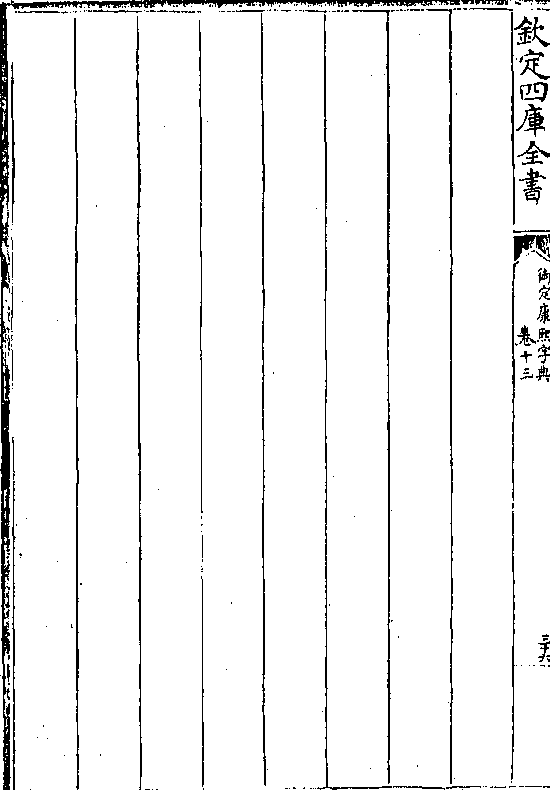 欽定四庫全書
御定康熙字典
卷十三
三十六